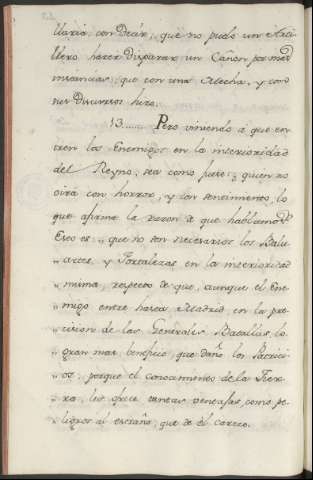 llaria con Decir, que no pudo un Arti
llero hacer disparar un Cañon por mas
instancias, que con una Mecha, y con
sus Discursos hizo.
13....... Pero viniendo à que en
tren los Enemigos en la interioridad
del Reyno, sea como fuere, quien no
oirá con horror, y con sentimiento, lo
que afirma la razon de que hablamos?
Esto es: que no son necesarios los Balu
„ artes, y Fortalezas en la interioridad
„ misma, respecto de que, aunque el Ene
„ migo entre hasta Madrid, en la pre
„ cision de las Generales Batallas, lo
„ gran mas beneficio, que daño los Patricios
„ os; porque el conocimiento de la Tier
„ ra, les ofrece tantas ventajas, como pe
„ ligros al estraño, que de el carece.